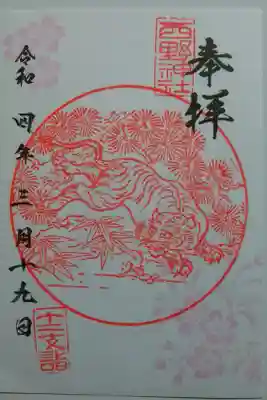 奉拝
西野神社
令和四年三月十九日
十二支詣